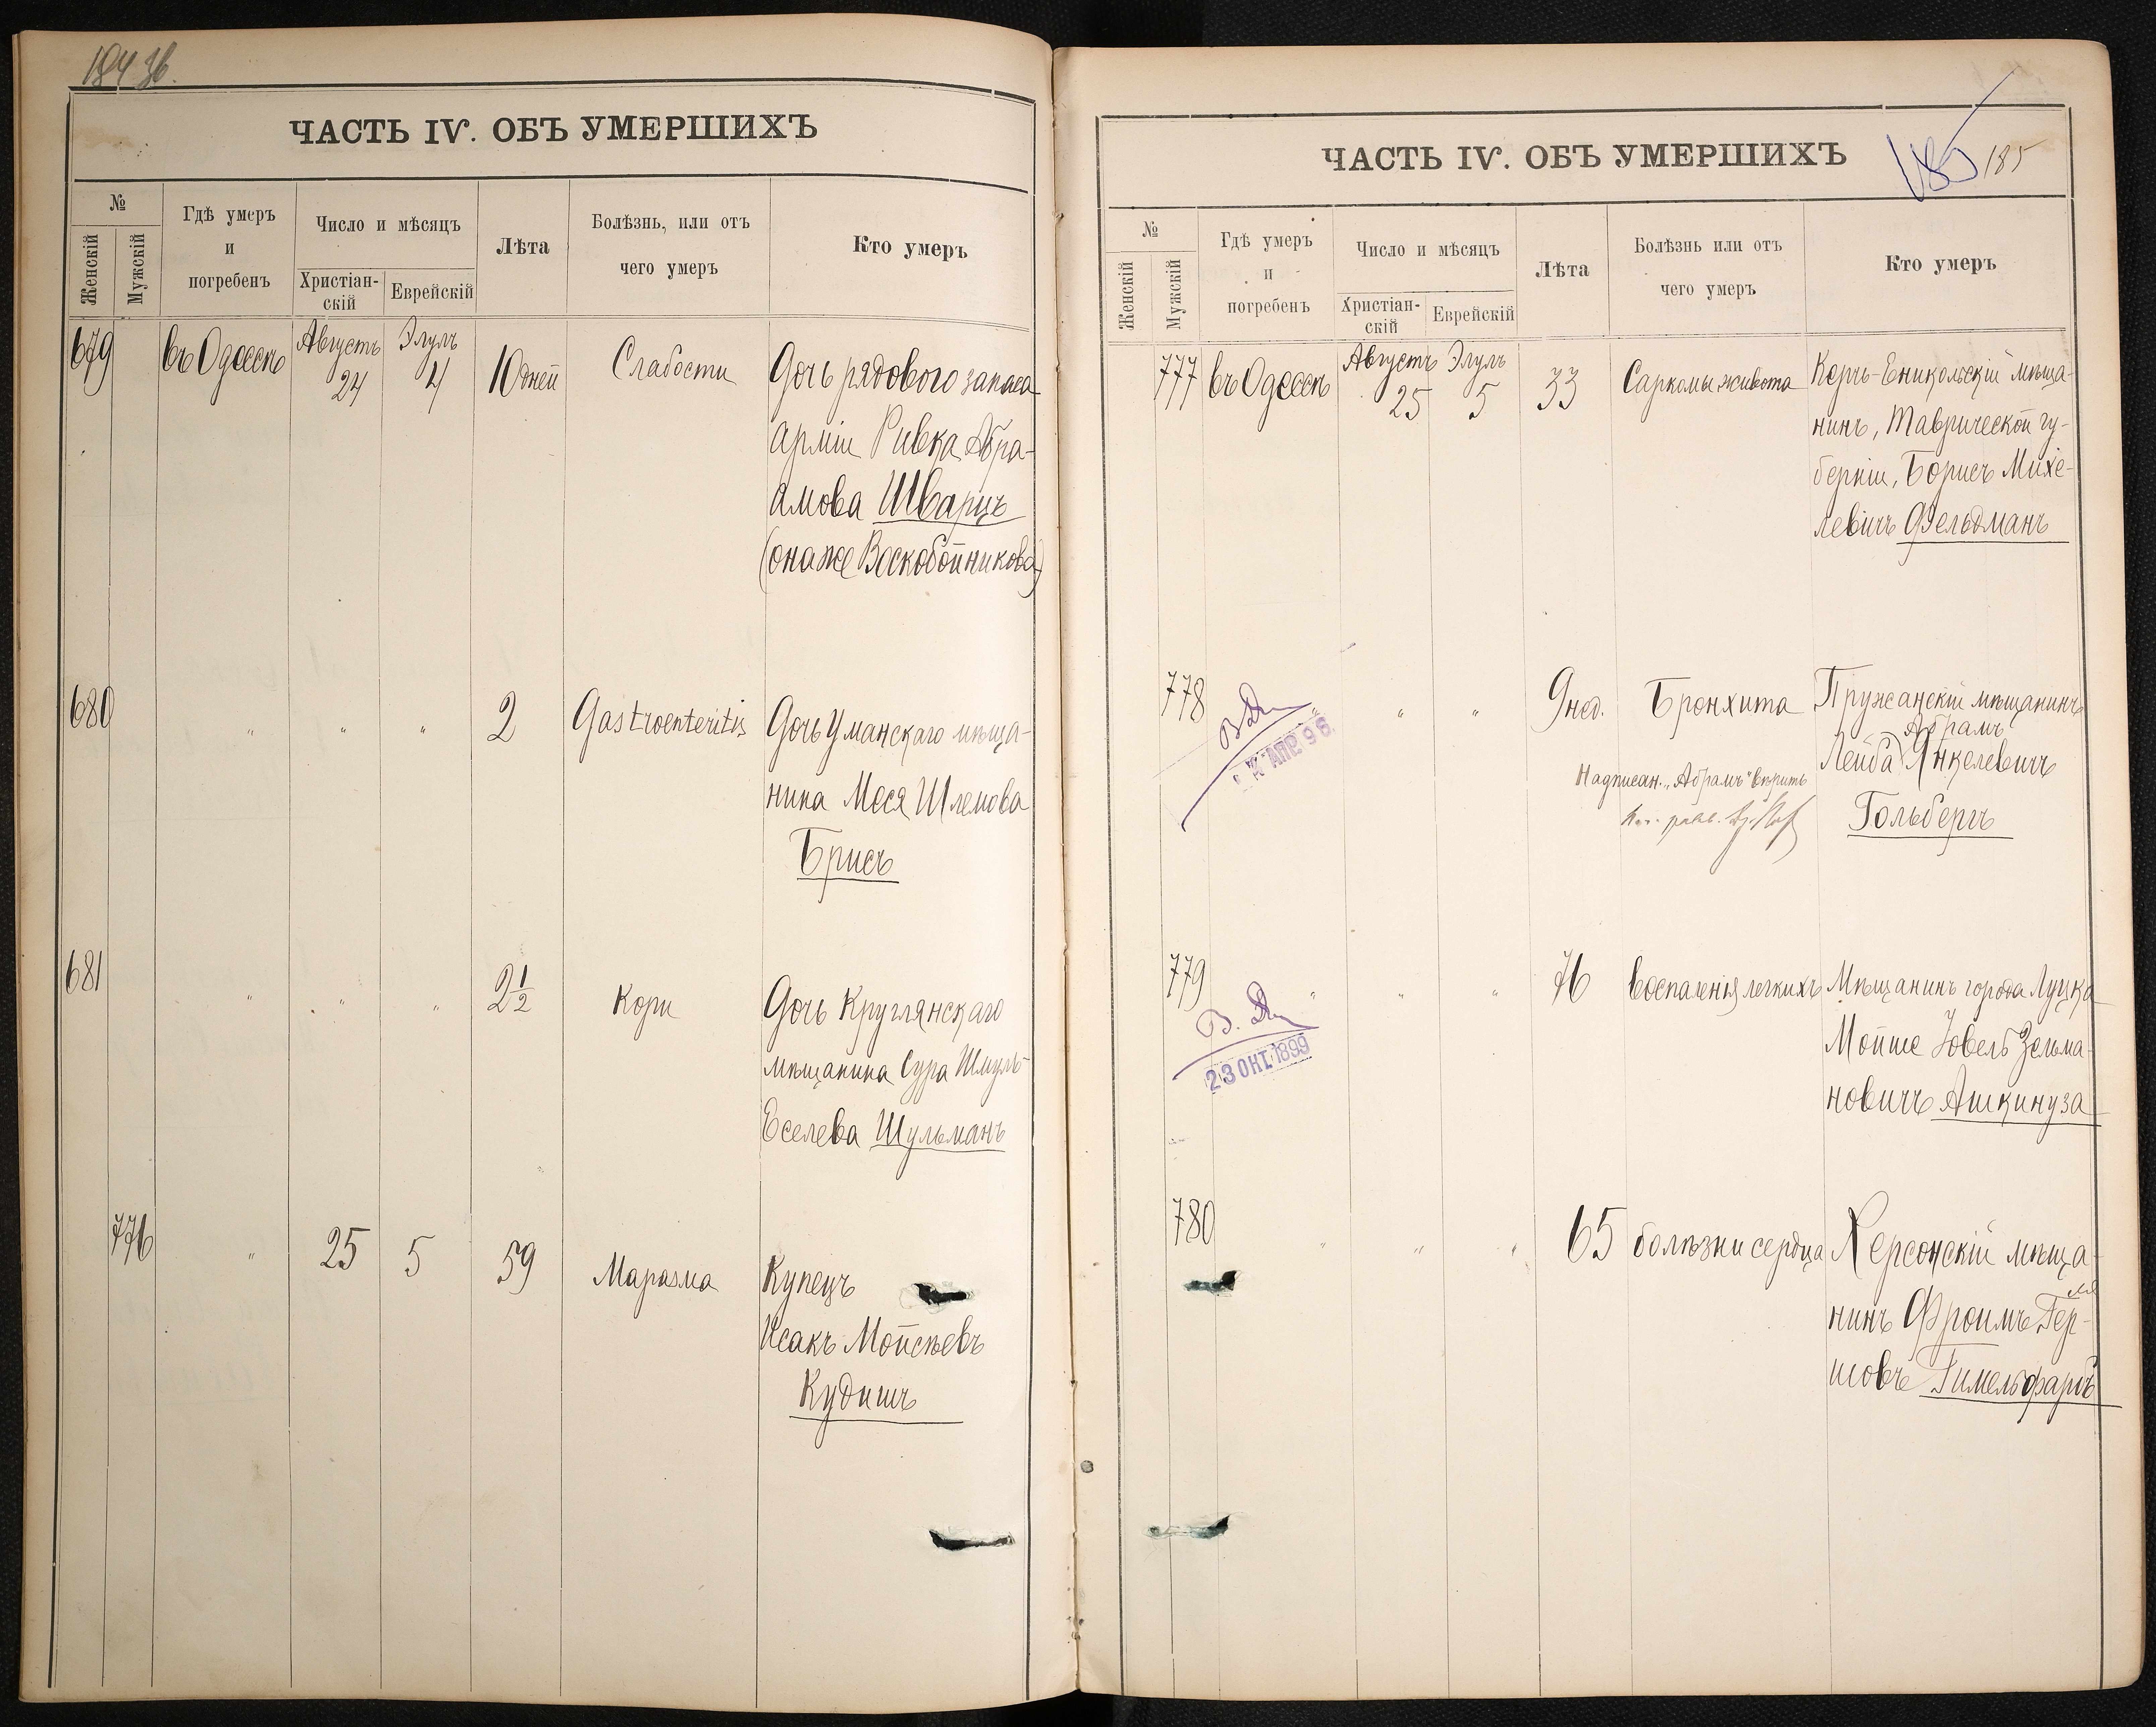 184 зв.
ЧАСТЬ IV. ОБЪ УМЕРШИХЪ
№
Женскій
Мужскій
Гдѣ умеръ
и
погребенъ
Число и мѣсяцъ
Христіан-
скій
Еврейскій
Лѣта
Болѣзнь, или отъ
чего умеръ
Кто умеръ
679 въ Одессѣ Августъ 24 Элулъ 4 10 дней Слабости Дочь рядового запаса
арміи Ривка Абра-
амова Шварцъ
(она же Воскобойникова)
680 " " " 2 Gastroenteritis Дочь Уманскаго мѣща-
нина Меся Шлемова
Брисъ
681 " " " 2½ Кори Дочь Круглянскаго
мѣщанина Сура Шмуль-
Еселева Шульманъ
776 " 25 5 59 Маразма Купецъ
Исакъ Мойсѣевъ
Кудишъ
ЧАСТЬ IV. ОБЪ УМЕРШИХЪ
185 185
№
Женскій
Мужскій
Гдѣ умеръ
и
погребенъ
Число и мѣсяцъ
Христіан-
скій
Еврейскій
Лѣта
Болѣзнь или отъ
чего умеръ
Кто умеръ
777 въ Одессѣ Августъ 25 Элулъ 5 33 Саркомы живота Керчь-Еникольскій мѣща-
нинъ, Таврической гу-
берніи, Борисъ Михе-
левичъ Фельдманъ
778 " " " 9 нед. Бронхита Пружанскій мѣщанинъ
Абрамъ
Лейба Янкелевичъ
Гольбергъ
Надписан. „Абрамъ" вѣрить
АПР. 98
779 " " " 76 Воспаленія легкихъ Мѣщанинъ города Луцка
Мойше Іовель Зельма-
новичъ Ашкинуза
23 ОКТ. 1899
780 " " " 65 болѣзни сердца Херсонскій мѣща-
нинъ Фроимъ Гер-
шовъ Гимельфарбъ